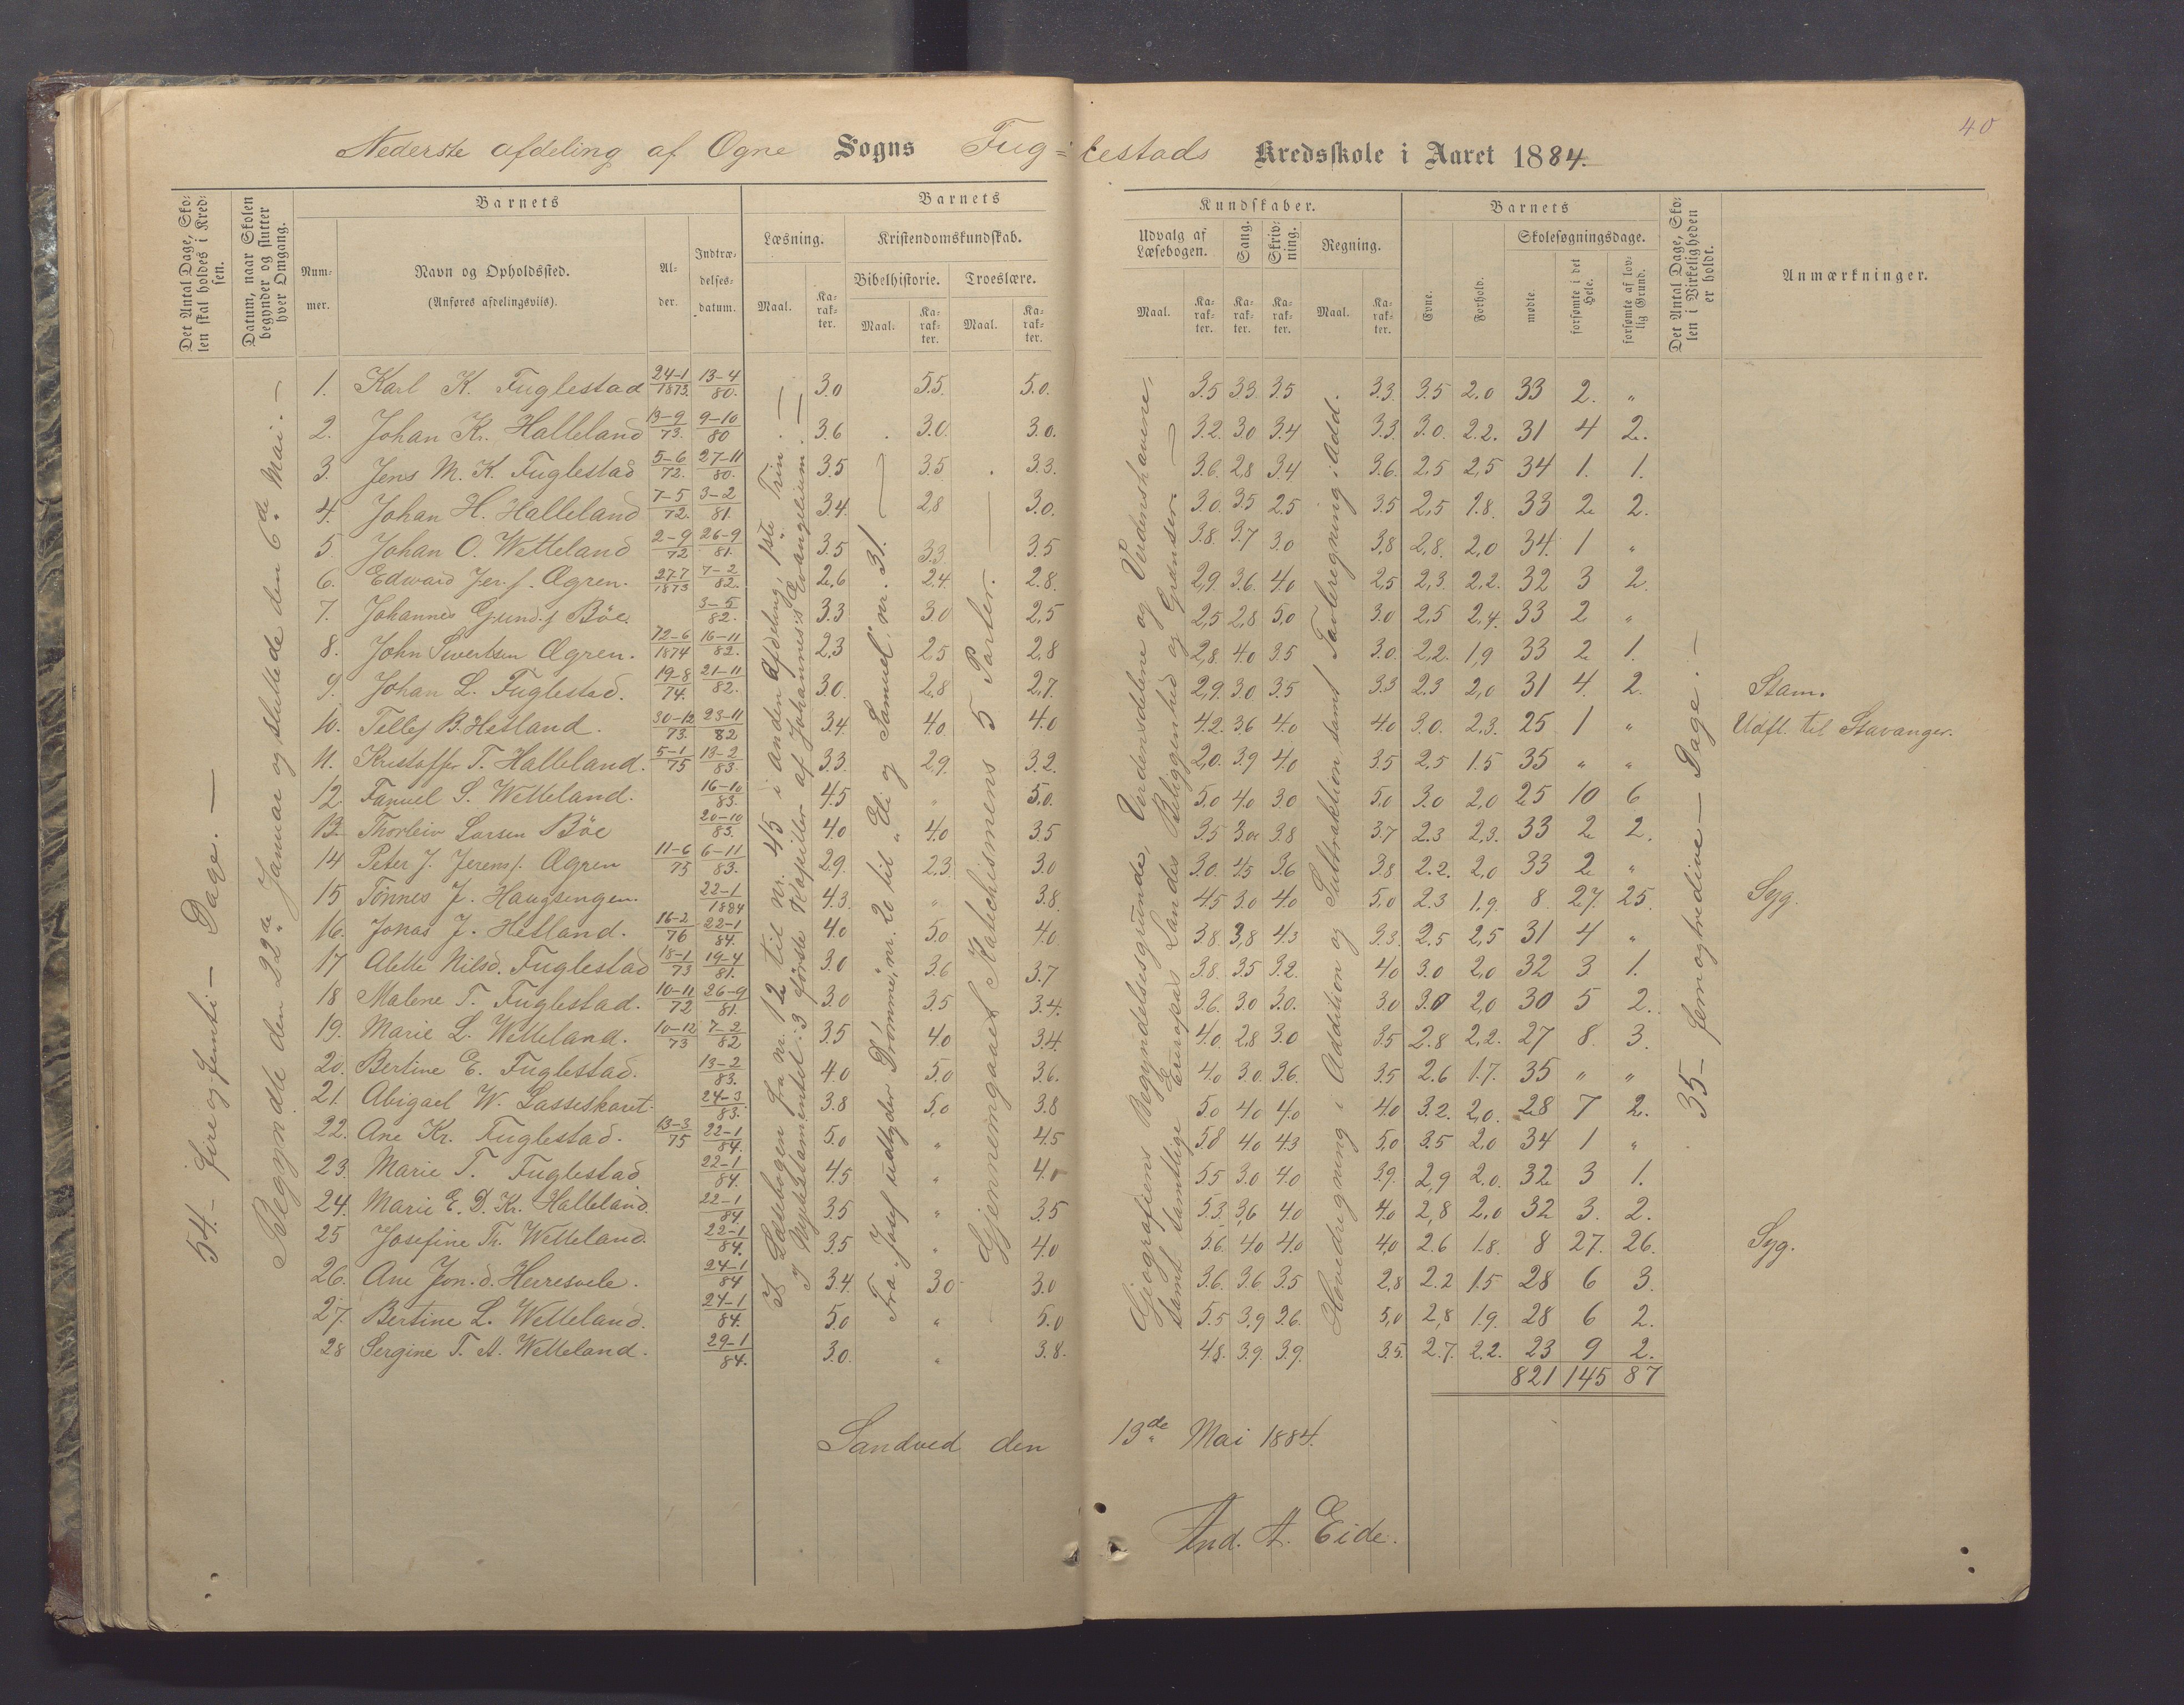 40
Nederste afdeling af Ogne Sogns Fug=lestads Kredsskole i Aaret 1884.
Det Antal Dage, Skolen skal holdes i Kredsen.
Datum, naar Skolen begynder og slutter hver Omgang.
Barnets
Barnets Kundskaber.
Barnets
Det Antal Dage, Skolen i Virkeligheden er holdt.
Anmærkninger.
Nummer. Navn og Opholdssted. (Anføres afdelingsviis). Alder. Indtrædelsesdatum.
Læsning. Kristendomskundskab. Udvalg af Læsebogen. Sang. Skrivning. Regning.
Bibelhistorie. Troeslære.
Evne. Forhold. Skolesøgningsdage.
mødte. forsømte i det Hele. forsømte af lovlig Grund.
Maal. Karakter. Maal. Karakter. Maal. Karakter. Maal. Karakter. Karakter. Karakter. Maal. Karakter.
54 – fire og femti – Dage. –
Begyndte den 22de Januar og sluttede den 6de Mai. –
I Læsebogen fra nr. 12 til nr. 45 i anden afdeling, 1ste Trin. –
I Nytestamentet: 3 første Kapitler af Johannes's Evangelium. –
Fra "Josef udtyder Drømme", nr. 20 til "Eli og Samuel", nr. 31. –
Gjennemgaaet Katechismens 5 Parter. –
Gjeografiens Begyndelsesgrunde, Verdensdelene og Verdenshavene,
samt samtlige Europas Landes Beliggenhed og Grændser. –
Hovedregning i Addition og Subtraktion samt Tavleregning i Add.
35 – fem og tredive – Dage. –
1. Karl K. Fuglestad 24-1 1873. 13-4 80. 3.0 5.5. 5.0. 3.5 3.3. 3.5 3.3. 3.5 2.0 33 2. "
2. Johan Kr. Halleland 13-9 73. 9-10 80 3.6 3.0. 3.0. 3.2. 3.0 3.4 3.3. 3.0. 2.2. 31 4 2.
3. Jens M. K. Fuglestad 5-6 72. 27-11 80. 3.5 3.5 3.3. 3.6. 2.8 3.4 3.6. 2.5 2.5 34 1. 1.
4. Johan H. Halleland 7-5 72. 3-2 81. 3.4. 2.8 3.0. 3.0. 3.5 2.5 3.5 2.5 1.8. 33 2 2.
5. Johan O. Wetteland 2-9 72 26-9 81. 3.5 3.3. 3.5 3.8. 3.7 3.0 3.8 2.8. 2.0 34. 1 "
6. Edward Jer. s. Ægren. 27-7 1873 7-2 82. 2.6 2.4. 2.8. 2.9 3.6. 4.0 2.5 2.3 2.2. 32 3 2.
7. Johannes Gund. s. Bøe. 3-5 82. 3.3 3.0 2.5 2.5 2.8 5.0 3.0 2.5 2.4. 33 2 "
8. John Sivertsen Ægren. 12-6 1874 16-11 82. 2.3 2.5 2.8 2.8. 4.0 3.5 3.0. 2.2. 1.9 33 2 1.
9. Johan L. Fuglestad. 19-8 74. 21-11 82. 3.0. 2.8 2.7. 2.9. 3.0 3.5 3.3 2.3 2.0 31 4. 2. Stam.
10. Tellef B. Hetland. 30-12 73. 23-11 82 3.4. 4.0. 4.0 4.2. 3.6 4.0 4.0 3.0. 2.3. 25 1 " Udfl. til Stavanger.
11. Kristoffer T. Halleland. 5-1 75 13-2 83. 3.3. 2.9. 3.2. 2.0. 3.9 4.0 3.5 2.5 1.5 35 " "
12. Fanuel S. Wetteland. 16-10 83. 4.5 " 5.0. 5.0 4.0 3.0 5.0 3.0 2.0 25 10 6
13. Thorleiv Larsen Bøe 20-10 83. 4.0 4.0 3.5 3.5 3.0 3.8 3.7 2.3 2.3. 33 2 2.
14 Peter J. Jerems. Ægren 11-6 75 6-11 83. 2.9. 2.3. 3.0 3.0. 4.5 3.6 3.8 2.2. 2.0 33 2 "
15 Tønnes J. Haugsengen. 22-1 1884 4.3. " 3.8. 4.5 3.0 4.0 5.0 2.3 1.9. 8. 27. 25. Syg.
16. Jonas J. Hetland. 16-2 76 22-1 84. 4.0 5.0 4.0 3.8. 3.8 4.3 3.3. 2.5 2.5 31 4 "
17 Alette Nilsd. Fuglestad 18-1 73 19-4 81. 3.0 3.6 3.7 3.8. 3.5 3.2. 4.0 3.0 2.0 32 3 1.
18 Malene T. Fuglestad. 10-11 72 26-9 81. 3.0 3.5 3.4. 3.6. 3.0 3.0. 3.0 3.0 2.0 30 5 2.
19. Marie L. Wetteland. 10-12 73 7-2 82 3.5 4.0 3.4. 4.0. 2.8 3.0 3.5 2.8 2.2. 27 8. 3.
20. Bertine E. Fuglestad. 13-2 83. 4.0 5.0 3.6. 4.0 3.0. 3.6. 3.5 2.6 1.7. 35 " "
21. Abigael W. Lasseskaret. 24-3 83. 3.8 5.0 3.8 5.0 4.0 4.0 4.0 3.2. 2.0. 28 7 2.
22. Ane Kr. Fuglestad. 13-3 75 22-1 84. 5.0 " 4.5 5.8 4.0 4.3 5.0 3.5 2.0 34 1 "
23. Marie T. Fuglestad 22-1 84. 4.5 " 4.0 5.5 3.0 4.0 3.9. 2.9 2.0. 32 3 1.
24. Marie E. D. Kr. Halleland. 22-1 84. 3.5 " 3.5 5.3. 3.6 4.0 4.0 2.8 2.0 32 3. 2.
25 Josefine Th. Wetteland. 22-1 84. 3.5 " 4.0 3.6. 4.0 4.0 4.0 2.6 1.8. 8 27. 26. Syg.
26. Ane Jon. d. Herresvele. 24-1 84 3.4. 3.0 3.0 3.6. 3.6 3.5 2.8 2.2 1.5 28 6 3.
27. Bertine L. Wetteland. 24-1 84. 5.0 " 5.0 5.5 3.9 3.6. 5.0 2.8 1.9. 28 6 2.
28 Sergine T. A. Wetteland. 29-1 84. 3.0. " 3.8. 4.8. 3.9. 3.9. 3.5. 2.7. 2.2. 23 9 2.
821 145 87
Sandved den 13de Mai 1884.
And. A. Eide.